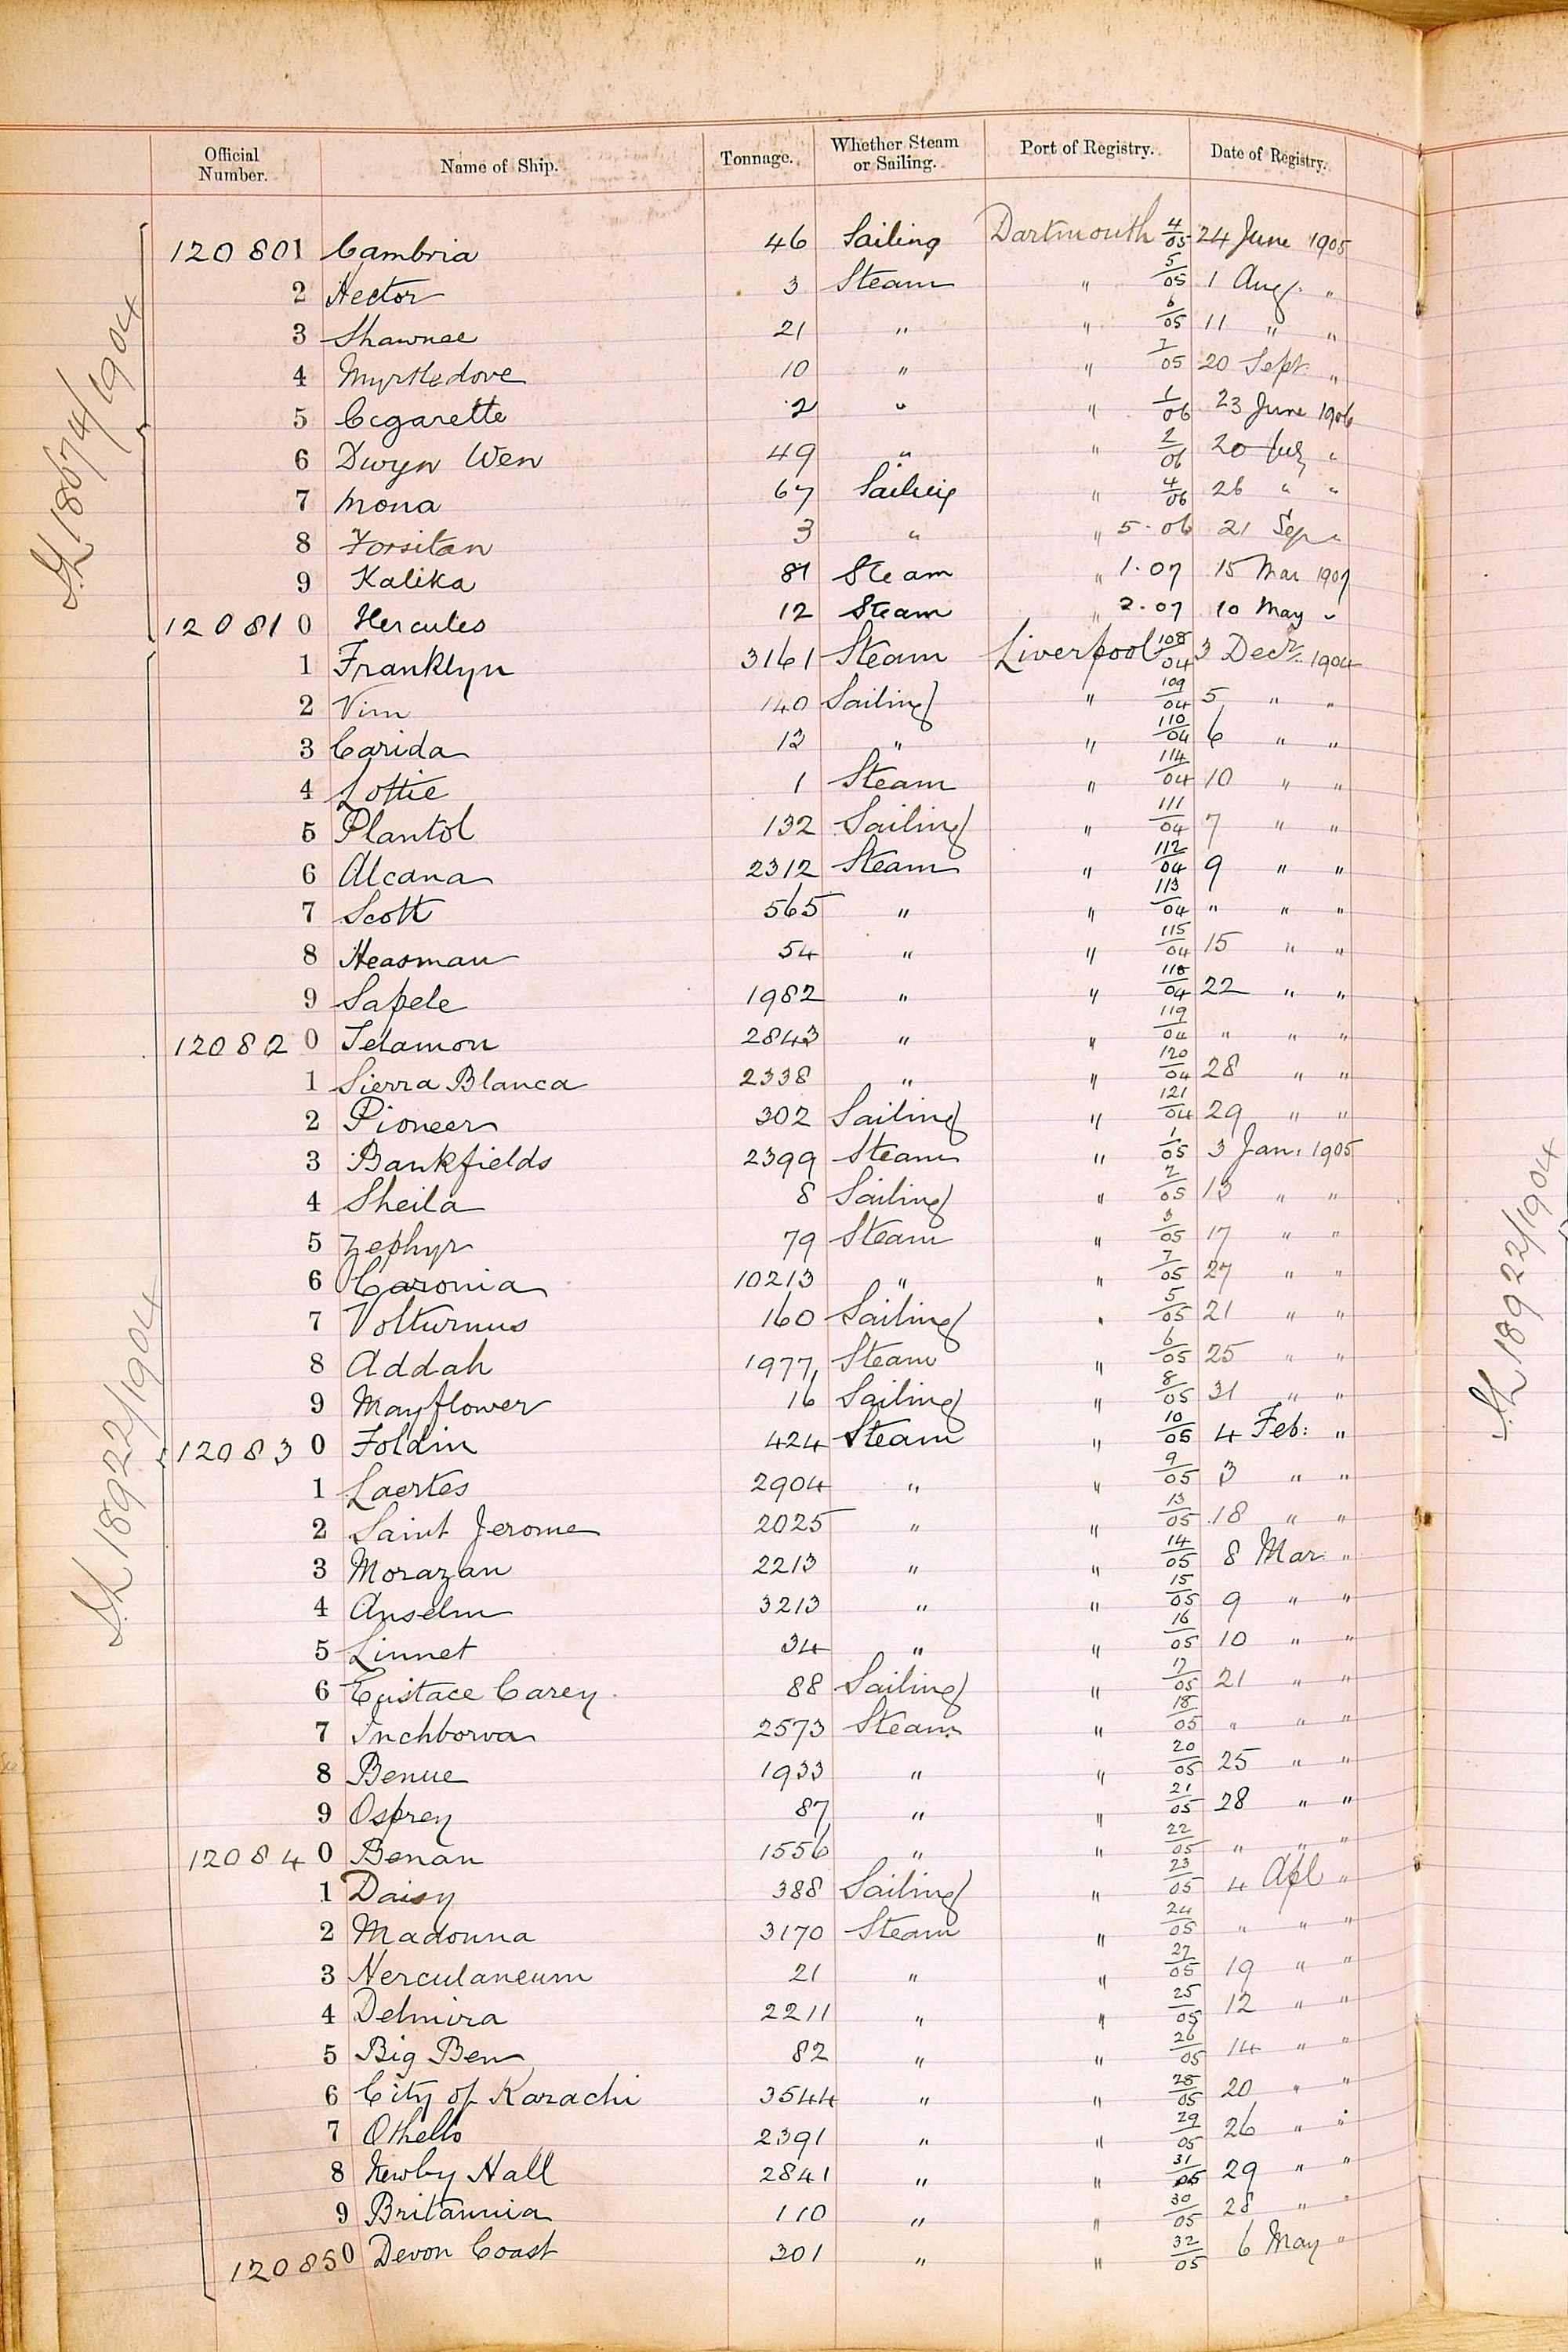 Official Number. Name of Ship. Tonnage. Whether Steam or Sailing. Port of Registry. Date of Registry.
120801 Cambria 46 Sailing Dartmouth 4/05 24 June 1905
2 Hector 3 Steam " 5/05 1 Aug. "
3 Shawnee 21 " " 6/05 11 " "
4 Myrtledove 10 " " 7/05 20 Sept. "
5 Cigarette 2 " " 1/06 23 June 1906
6 Dwyn Wen 49 " " 2/06 20 July "
7 Mona 67 Sailing " 4/06 26 " "
8 Forsitan 3 " " 5.06 21 Sep "
9 Kalika 81 Steam " 1.07 15 Mar 1907
120810 Hercules 12 Steam " 2.07 10 May "
1 Franklyn 3161 Steam Liverpool 108/04 3 Decr. 1904
2 Vim 140 Sailing " 109/04 5 " "
3 Carida 13 " " 110/04 6 " "
4 Lottie 1 Steam " 114/04 10 " "
5 Plantol 132 Sailing " 111/04 7 " "
6 Alcana 2312 Steam " 112/04 9 " "
7 Scott 565 " " 113/04 " " "
8 Heasman 54 " " 115/04 15 " "
9 Sapele 1982 " " 118/04 22 " "
120820 Telamon 2843 " " 119/04 " " "
1 Sierra Blanca 2338 " " 120/04 28 " "
2 Pioneer 302 Sailing " 121/04 29 " "
3 Bankfields 2399 Steam " 1/05 3 Jan. 1905
4 Sheila 8 Sailing " 2/05 13 " "
5 Zephyr 79 Steam " 3/05 17 " "
6 Caronia 10213 " " 7/05 27 " "
7 Volturnus 160 Sailing " 5/05 21 " "
8 Addah 1977 Steam " 6/05 25 " "
9 Mayflower 16 Sailing " 8/05 31 " "
120830 Foldin 424 Steam " 10/05 4 Feb: "
1 Laertes 2904 " " 9/05 3 " "
2 Saint Jerome 2025 " " 13/05 18 " "
3 Morazan 2213 " " 14/05 8 Mar. "
4 Anselm 3213 " " 15/05 9 " "
5 Linnet 34 " " 16/05 10 " "
6 Eustace Carey 88 Sailing " 17/05 21 " "
7 Inchborva 2573 Steam " 18/05 " " "
8 Benue 1933 " " 20/05 25 " "
9 Osprey 87 " " 21/05 28 " "
120840 Benan 1556 " " 22/05 " " "
1 Daisy 388 Sailing " 23/05 4 Apl "
2 Madonna 3170 Steam " 24/05 " " "
3 Herculaneum 21 " " 27/05 19 " "
4 Delmira 2211 " " 25/05 12 " "
5 Big Ben 82 " " 26/05 14 " "
6 City of Karachi 3544 " " 28/05 20 " "
7 Othello 2391 " " 29/05 26 " "
8 Newby Hall 2841 " " 31/05 29 " "
9 Britannia 110 " " 30/05 28 " "
120850 Devon Coast 301 " " 32/05 6 May "
18674/1904
18922/1904
18922/1904